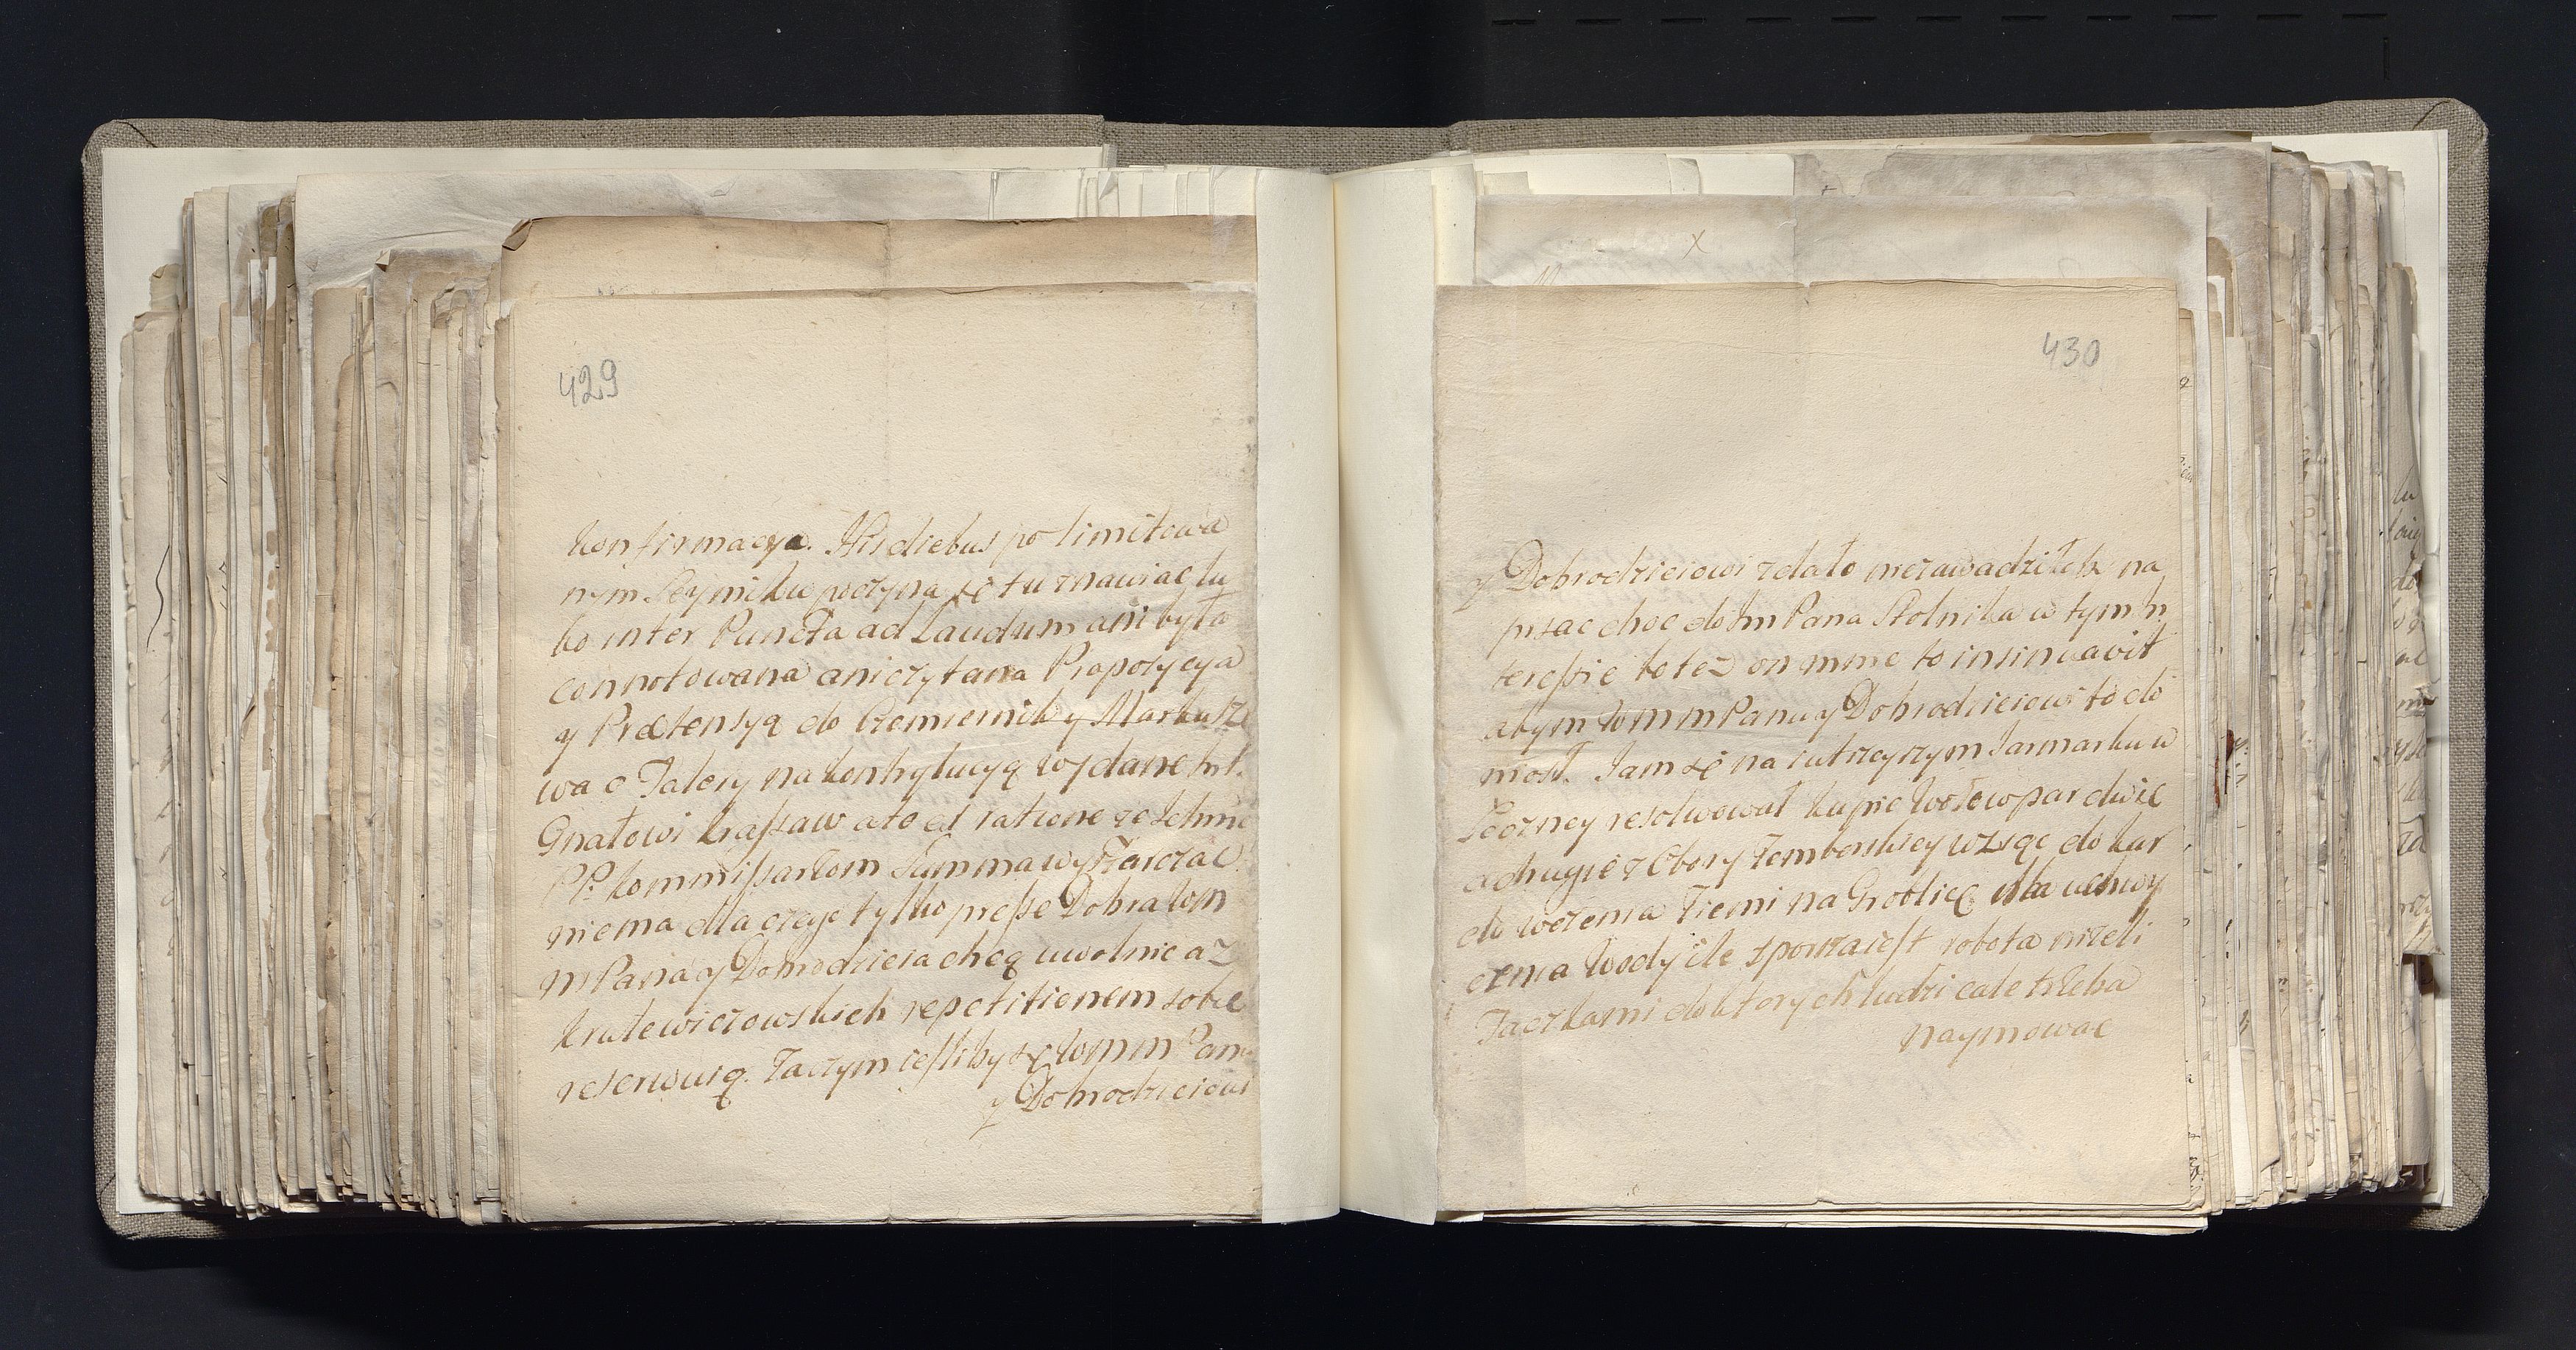 429
konfirmacya. His diebus po limitowa
nym Seymiku poczyna se tu znawiac tu
ko inter Puncta ad Laudum ani była
connotowana ani czytana Propozycya
y Prætensyą do Czemiernik y Markusze
wa o Talery na kontrybucyą wydane
Gnatowi a to ea ratione ze Ichmć
PP. kommissarzom Summa wystarczac
niema dla czego tylko Dobra Wm
m Pana y Dobrodzieia chcą uwolnic a z
krolewiczowskich repetitionem sobie
reserwuią. Zaczym iesliby sę Wm m Panu
y Dobrodzieiowi
430
y Dobrodzieiowi zdało niezawadziłob na
pisac choc do Im Pana Stolnika w tym in
teressie bo tez on mnie to insinuavit
abym Wm m Panu y Dobrodzieiowi to do
niosł. Iam sę na iutrzeyszym Iarmarku w
Łeczney resolwował kupic Wołow par dwie
a drugie z Obory Zemborskiey wziąc do kar
do wożenia Ziemi na Groblię dla uchwy
cenia Wody ile sporsza iest robota nizeli
Taczkami do ktorych ludzi cale trzeba
naymowac